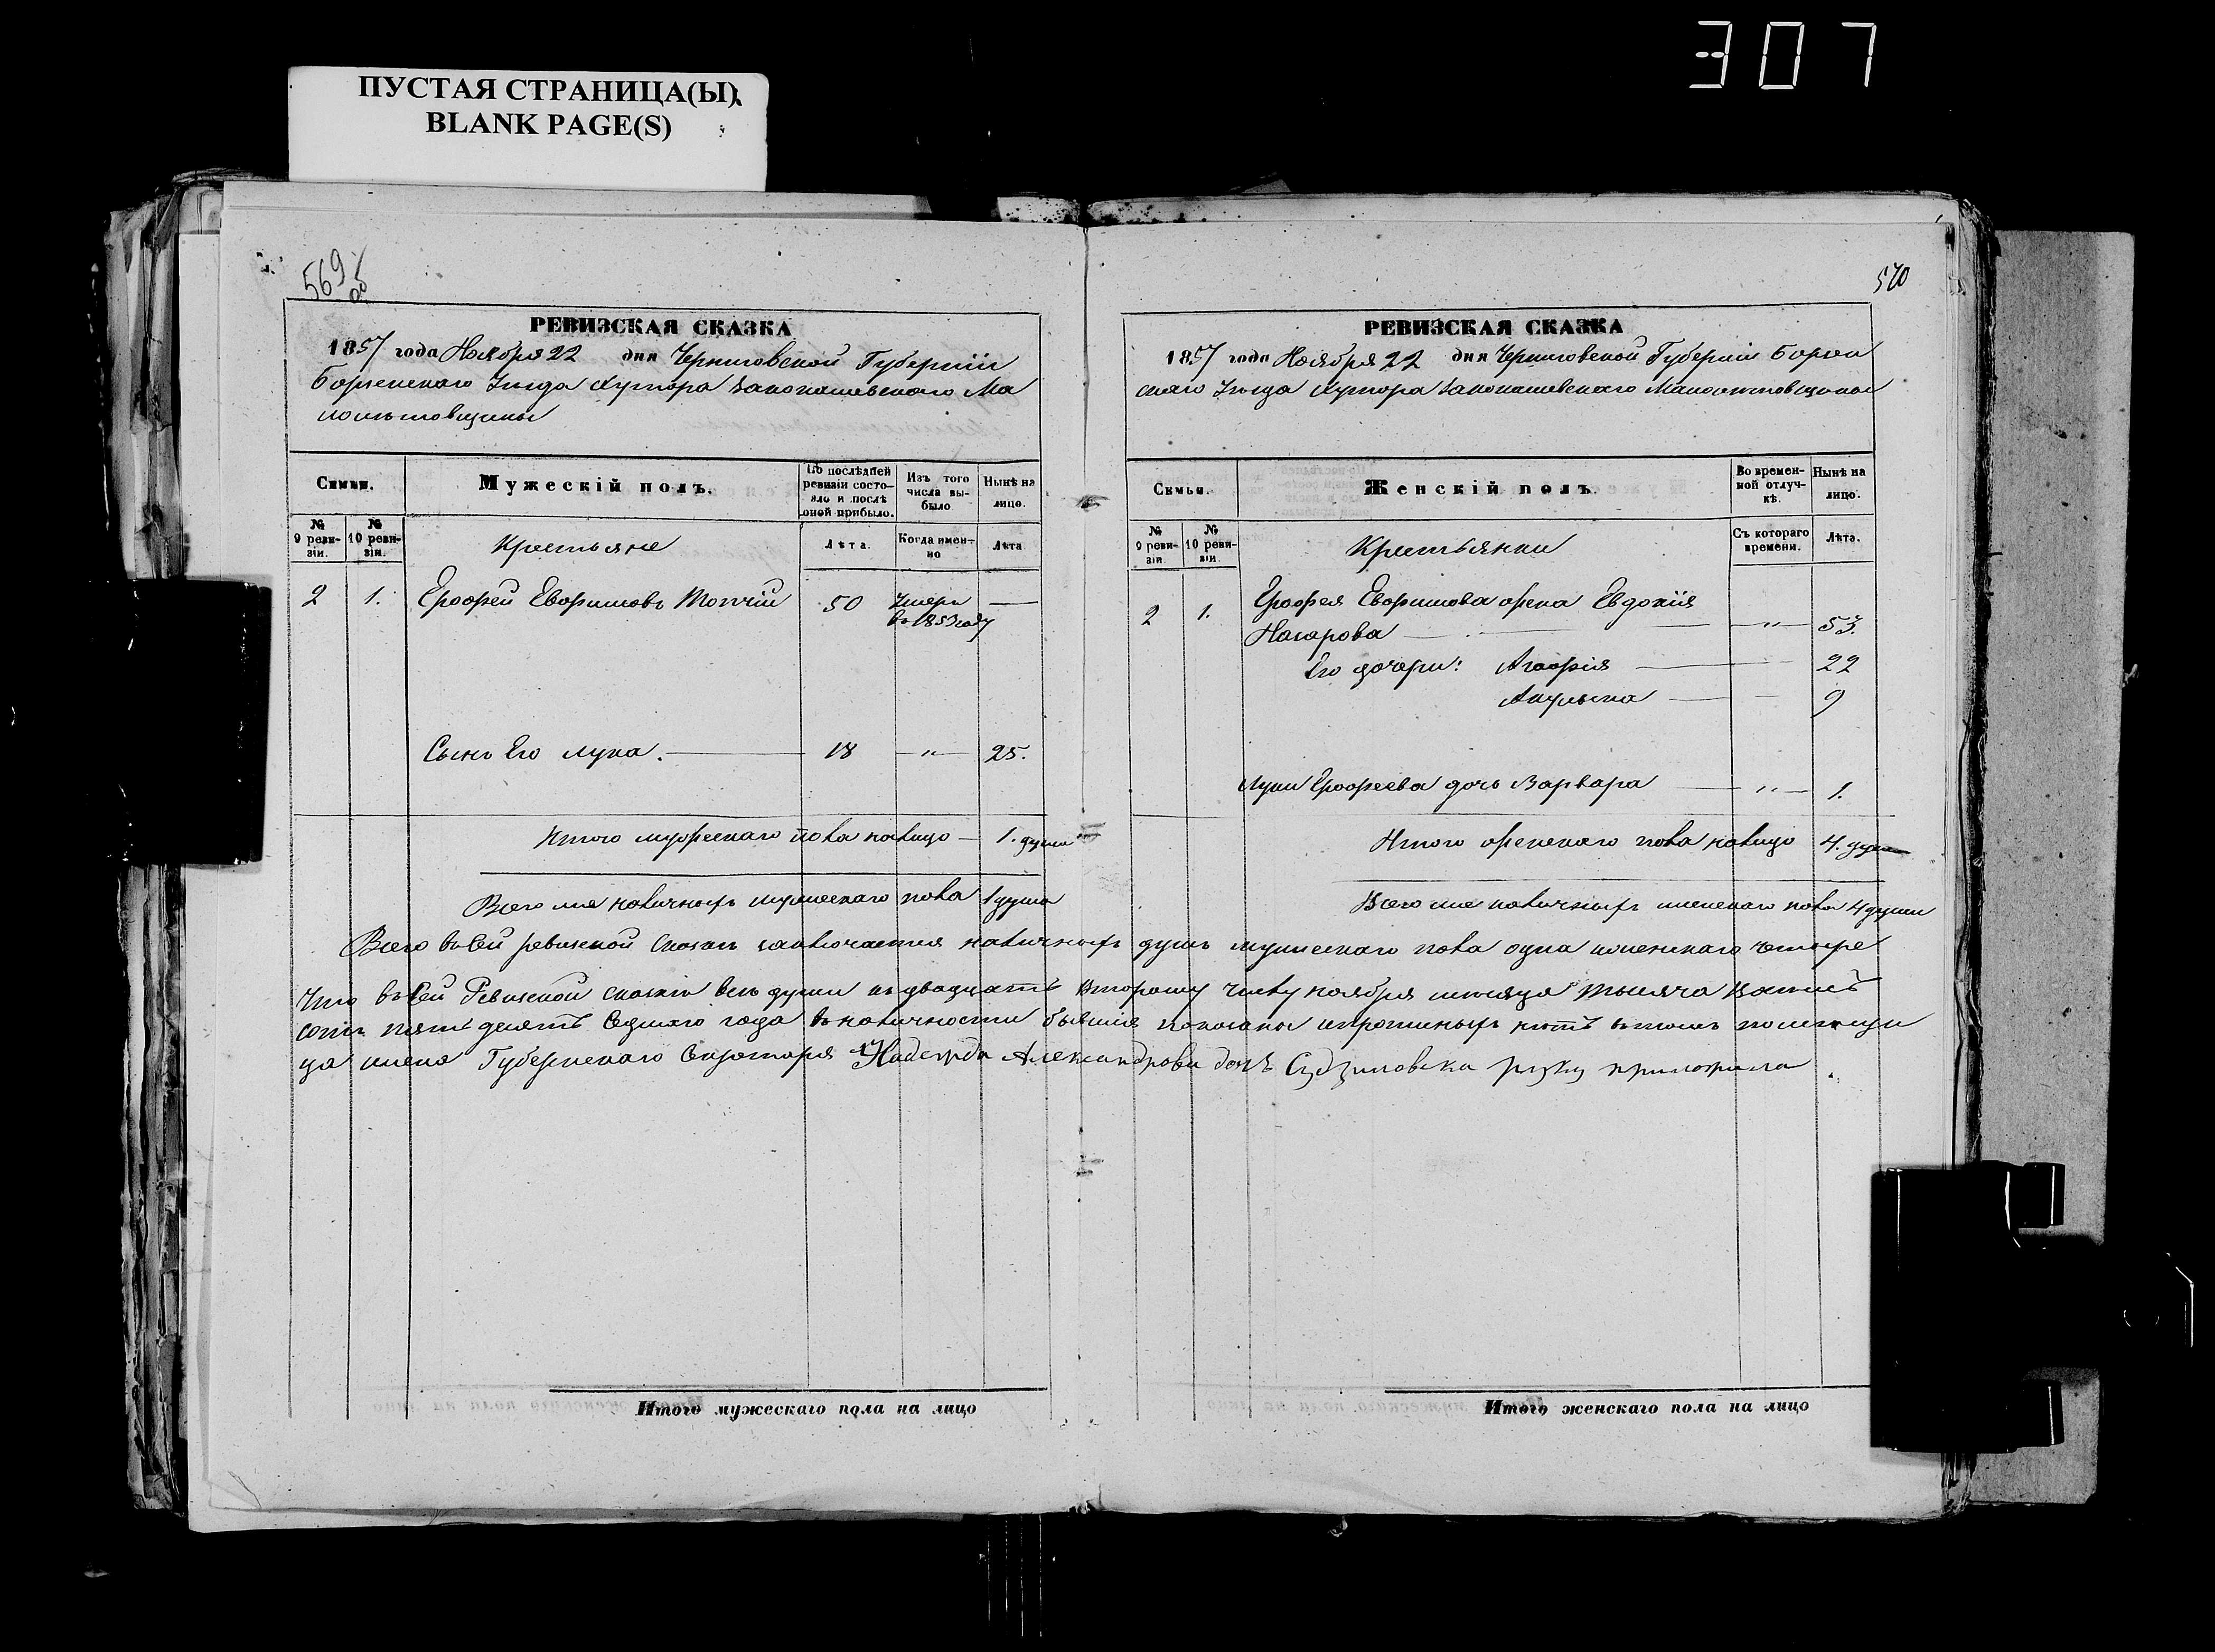 307
ПУСТАЯ СТРАНИЦА(Ы)
BLANK PAGE(S)
569
об
РЕВИЗСКАЯ СКАЗКА
1857 года Ноября 22 дня Черниговской Губерніи
Борзенскаго Уѣзда Хутора
Семьи.
Мужескій полъ.
По послѣдней ревизіи состояло и послѣ оной прибыло.
Изъ того числа выбыло
Нынѣ на лицо.
№ 9 ревизіи.
№ 10 ревизіи.
Крестьяне
Лѣта.
Когда именно
Лѣта
2 1. Ерофей Евфимовъ Топчій 50 Умеръ в 1853 году —
Сынъ Его Лука. — 18 — „ — 25.
Итого мужескаго пола налицо — 1. душа
Всего же наличныхъ мужескаго пола 1 душа
570
РЕВИЗСКАЯ СКАЗКА
1857 года Ноября 22 дня Черниговской Губерніи Борзен
скаго Уѣзда Хутора
Семьи.
Женскій полъ.
Во временной отлучкѣ.
Нынѣ на лицо.
№ 9 ревизіи
№ 10 ревизіи.
Крестьянки
Съ котораго времени.
Лѣта.
2 1. Ерофея Евфимова жена Евдокія
Назарова — „ — 53.
Его дочери: Агафія — 22
Акулина — 9
Луки Ерофеева дочь Варвара — „ — 1.
Итого женскаго пола налицо 4. души
Всего же наличныхъ женскаго пола 4 души
Всего въ Сей ревизской сказкѣ заключается наличныхъ душъ мужескаго пола одна и женскаго четыре
Что въ Сей Ревизской сказкѣ всѣ души къ двадцать второму числу ноября мѣсяца тысяча восемь
сотъ пятьдесятъ седмаго года в наличности бывшія показаны и прописныхъ нѣтъ въ томъ помѣщи
ца жена Губернскаго Секретаря Надежда Александрова дочь руку приложила
Итого мужескаго пола на лицо
Итого женскаго пола на лицо